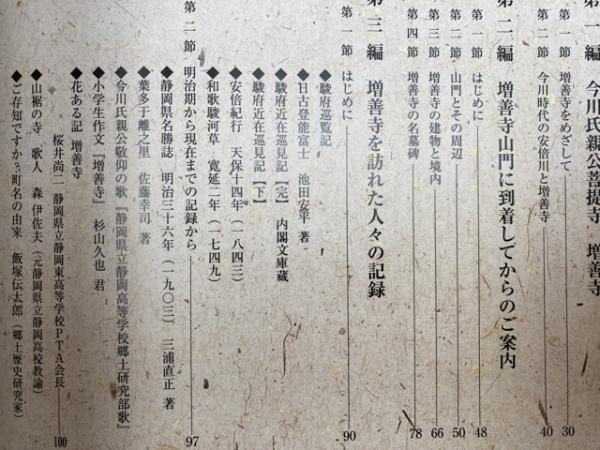 第一編　今川氏親公菩提寺　増善寺
第一節　増善寺をめざして　30
第二節　今川時代の安倍川と増善寺　40
第二編　増善寺山門に到着してからのご案内
第一節　はじめに　48
第二節　山門とその周辺　50
第三節　増善寺の建物と境内　66
第四節　増善寺の名墓碑　78
第三編　増善寺を訪れた人々の記録
第一節　はじめに　90
◆駿府巡覧記
◆日古登能富士　池田安平 著
◆駿府近在巡見記【完】　内閣文庫蔵
◆駿府近在巡見記【下】
◆安倍紀行　天保十四年（一八四三）
◆和歌駿河草　寛延二年（一七四九）
第二節　明治期から現在までの記録から　97
◆静岡県名勝誌　明治三十六年（一九〇三）三浦直正 著
◆葉多于離之里　佐藤幸司 著
◆今川氏親公敬仰の歌『静岡県立静岡高等学校郷土研究部歌』
◆小学生作文『増善寺』　杉山久也 君
◆花ある記　増善寺
桜井尚二　静岡県立静岡東高等学校ＰＴＡ会長　100
◆山裾の寺　歌人　森 伊佐夫（元静岡県立静岡高校教諭）
◆ご存知ですか？町名の由来　飯塚伝太郎（郷土歴史研究家）